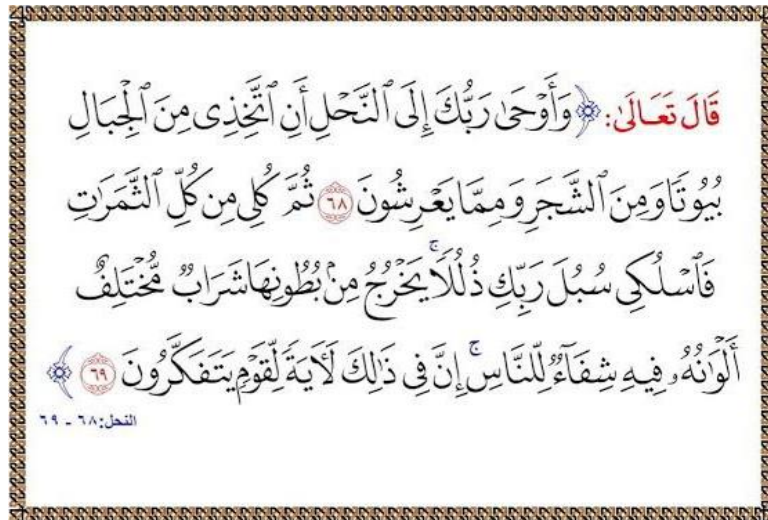 قَالَ تَعَالَىٰ: ﴿وَأَوۡحَىٰ رَبُّكَ إِلَى ٱلنَّحۡلِ أَنِ ٱتَّخِذِي مِنَ ٱلۡجِبَالِ
بُيُوتٗا وَمِنَ ٱلشَّجَرِ وَمِمَّا يَعۡرِشُونَ ٦٨ ثُمَّ كُلِي مِن كُلِّ ٱلثَّمَرَٰتِ
فَٱسۡلُكِي سُبُلَ رَبِّكِ ذُلُلٗاۚ يَخۡرُجُ مِنۢ بُطُونِهَا شَرَابٞ مُّخۡتَلِفٌ
أَلۡوَٰنُهُۥ فِيهِ شِفَآءٞ لِّلنَّاسِۚ إِنَّ فِي ذَٰلِكَ لَأٓيَةٗ لِّقَوۡمٖ يَتَفَكَّرُونَ ٦٩﴾
النحل: ٦٨ - ٦٩